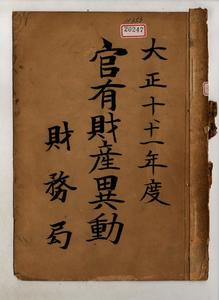 20247
大正十十一年度
官有財産異動
財務局